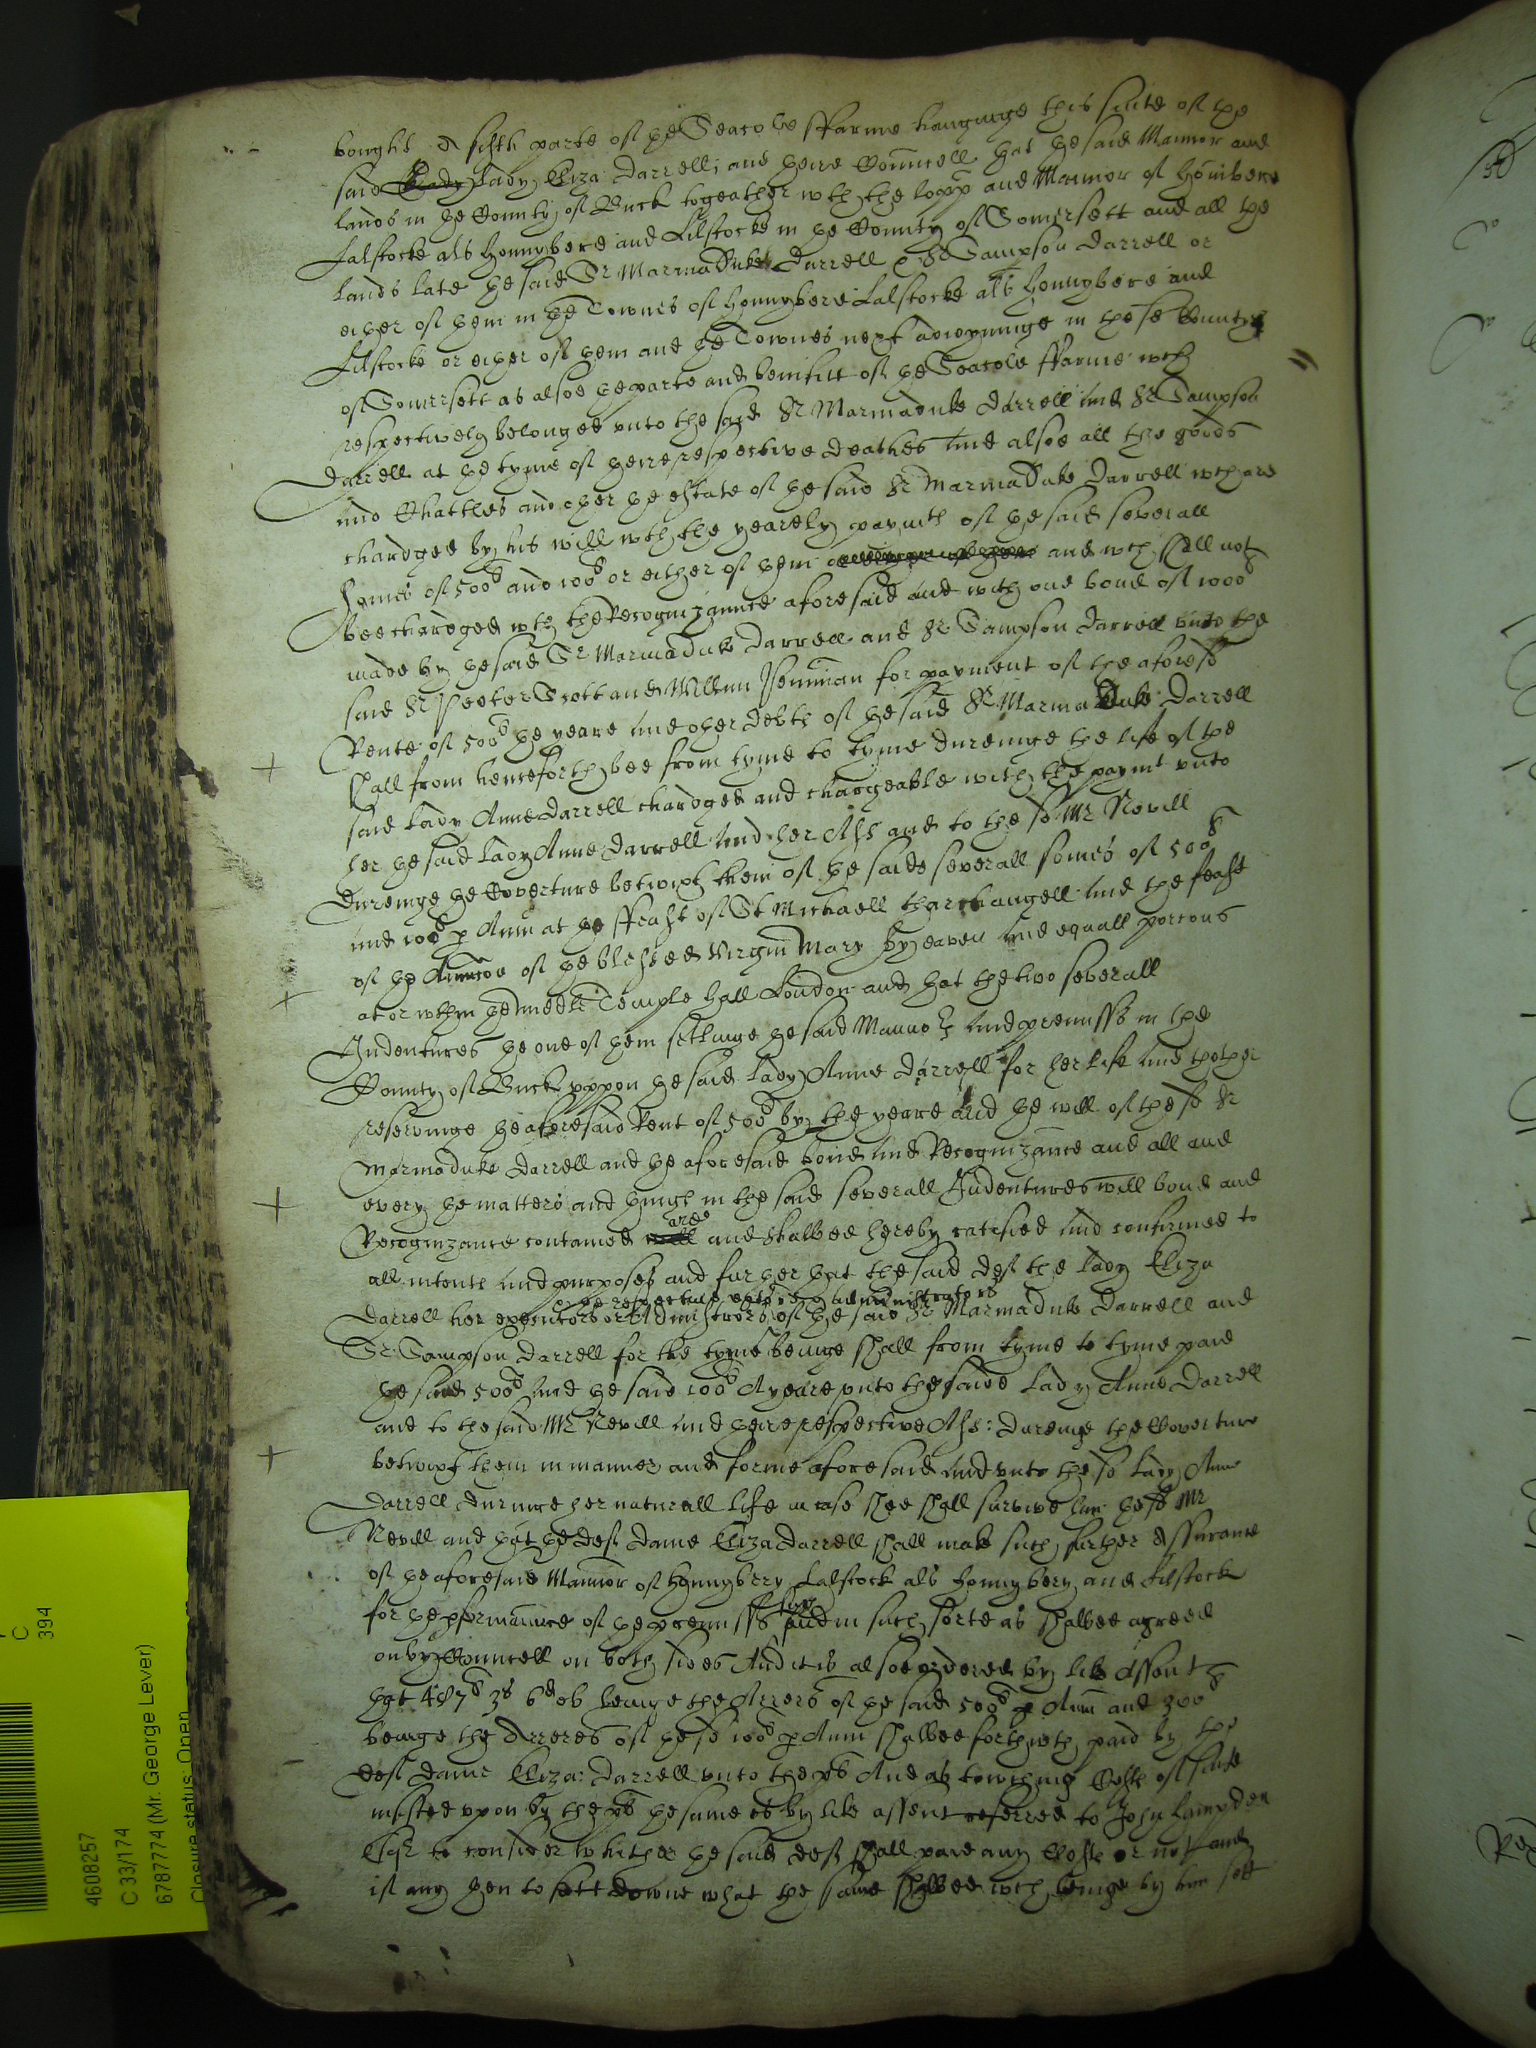 bought A fifth parte of the Seacole ffarme hanginge this suite of the
said Lady Lady Eliza Darrell; and there Councell that the said Mannor and
lands in the County of Buck togeather wth the and Mannor of Honibere
Lalstocke als Honnybere and Lilstocke in the County of Somersett and all the
lands late the said Sr Marmaduke Darrell & Sr Sampson Darrell or
either of them in the Townes of Honnybere Lalstocke als Honnybere and
Lilstocke or either of them and the Townes next adioyninge in the sd County
of Somersett as alsoe the parte and benifitt of the Seacole ffarme wch
respectively belonged unto the said Sr Marmaduke Darrell and Sr Sampson
Darrell at the tyme of theire respective deathes And alsoe all the goods
and Chattles and other the estate of the said Sr Marmaduke Darrell wch are
chardged by his will wth the yearely paymts of the said severall
somes of 500l and 100l or either of them and wch shall not
bee chardged wth the Recognizannce aforesaid and with one bond of 1000l
made by the said Sr Marmaduke Darrell and Sr Sampson Darrell unto the
said Sr Peeter Scott and Willm for payment of the aforesd
Rente of 500l the yeare and other debts of the said Sr Marmaduke Darrell
shall from henceforth bee from tyme to tyme dureinge the life of the
said Lady Anne Darrell chardged and chargeable with the paymt unto
her the said Lady Anne Darrell and her Ass and to the sd Mr Nevill
dureinge the Coverture betwixt them of the saide severall somes of 500l
and 100l p Ann at the ffeast of St Michaell tharchangell and the feast
of the Anncon of the blessed Virgin Mary by eaven and equall porcons
at or wthin the midle Temple hall London and that the two severall
Indentures the one of them setlinge the said Mannor and premisses in the
County of Buck uppon the said Lady Anne Darrell for her life and thother
reservinge the aforesaid Rent of 500l by the yeare and the will of the sd Sr
Marmaduke Darrell and the aforesaid bond and Recognizance and all and
every the matters and things in the said severall Indentures will bond and
Recognizance contained will are and shalbee hereby ratified and confirmed to
all intents and purposes and further that the said deft the Lady Eliza
& the respective executors & administrators
Darrell her executors or Administrators of the said Sr Marmaduke Darrell and
Sr Sampson Darrell for the tyme beinge shall from tyme to tyme paie
the said 500l and the said 100l A yeare unto the saide Lady Anne Darrell
and to the said Mr Nevill and theire respective Ass: dureinge the Coverture
betwixt them in manner and forme aforesaid and unto the sd Lady Anne
Darrell duringe her naturall life in case shee shall survive him the sd Mr
Nevill and that the deft dame Eliza Darrell shall make such further Assurance
of the aforesaid Mannor of Honnybery Lalstock als Honnybery and Lilstock
for the pformannce of the premisses and in such sorte as shalbee agreed
on by Councell on both sides And it is alsoe ordered by like Assent
that 487l 3s 6d ob beinge the Arrers of the said 500l p Ann and 300l
beinge the Arreres of the sd 100l p Ann shalbee forthwth paid by the
deft dame Eliza: Darrell unto the pls And as towching Costs of suite
insisted upon by the pls the same is by like assent referred to John Hampden
Esqr to consider whither the said deft shall paie any Costs or not and
if any then to sett downe what the same shalbee wch beinge by him sett
4608257
C 33/174
6787774 (Mr. George Lever)
Closure status: Open
C
394